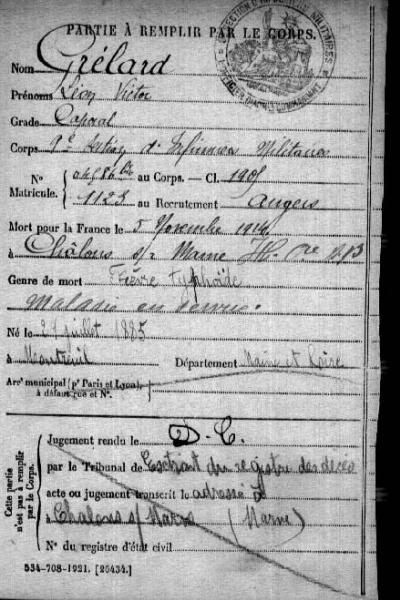 PARTIE À REMPLIR PAR LE CORPS.
Nom Grélard
Prénoms Léon Victor
Grade Caporal
Corps 9e Section d'Infirmiers Militaires
N° au Corps. — Cl. 1905
Matricule. 1123 au Recrutement Angers
Mort pour la France le 5 Novembre 1914
à Châlons s/ Marne
Genre de mort Fièvre typhoïde
Maladie en service.
Né le juillet 1885
à Montreuil Département Maine et Loire
Arrt municipal (pr Paris et Lyon),
à défaut rue et N°.
Cette partie n'est pas à remplir par le Corps.
Jugement rendu le D.C.
par le Tribunal de Extrait du registre des décès
acte ou jugement transcrit le adressé à
à Chalons s/ Marne (Marne)
N° du registre d'état civil
534-708-1921. [26434.]